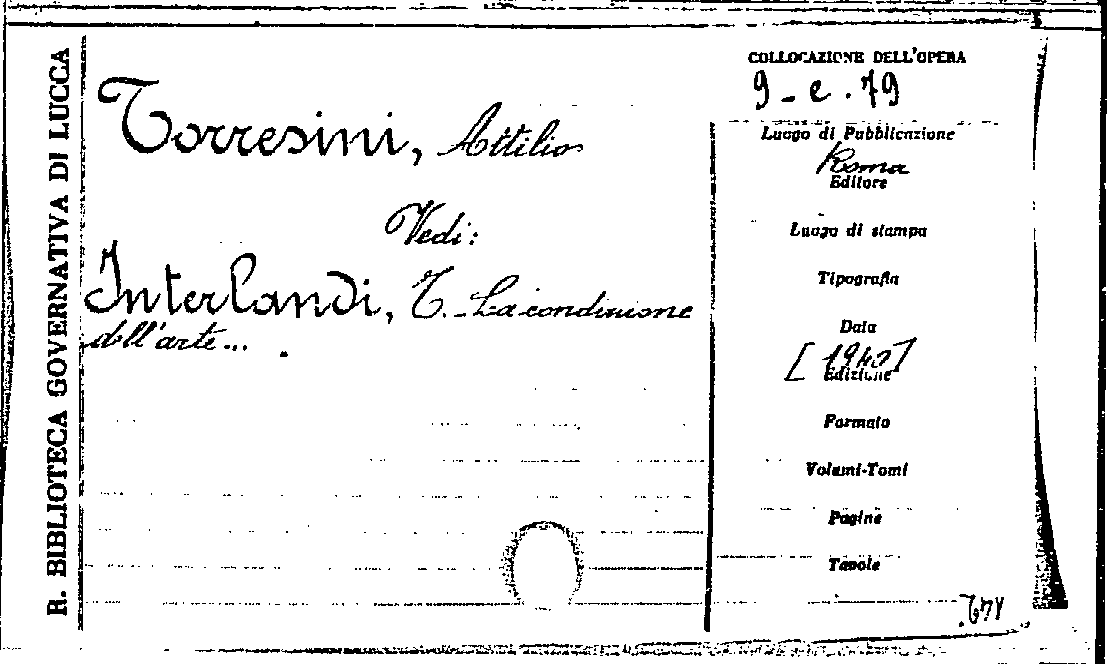 R. BIBLIOTECA GOVERNATIVA DI LUCCA
Torresini, Attilio
Vedi:
Interlandi, T. - La condizione
dell'arte... .
COLLOCAZIONE DELL'OPERA
9 - e. 79
Luogo di Pubblicazione
Roma
Editore
Luogo di stampa
Tipografia
Data
[1940]
Edizione
Formato
Volumi-Tomi
Pagine
Tavole